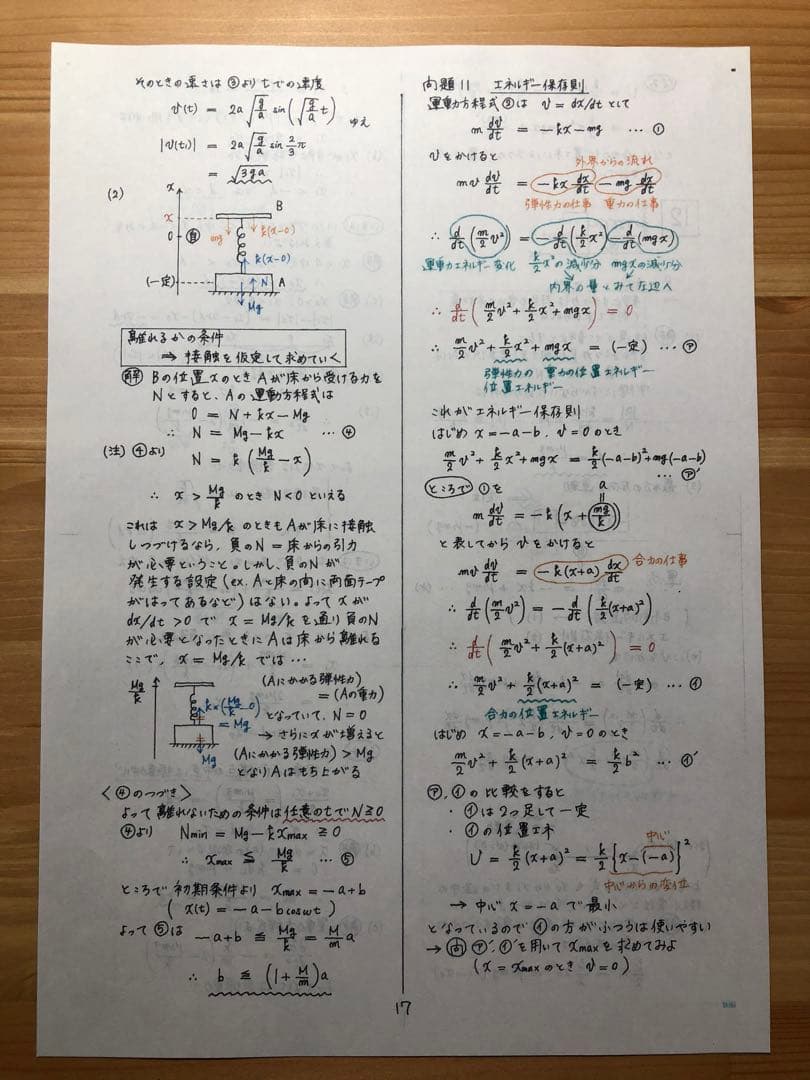 そのときの速さは③よりtでの速度
v(t) = 2a√(g/a) sin(√(g/a) t)
ゆえ
|v(t₁)| = 2a√(g/a) sin (2/3)π
= √(3ga)
(2)
x
B
x
mg
k(x-0)
0
自
k(x-0)
(一定)
N
A
Mg
離れるかの条件
⇒ 接触を仮定して求めていく
解 Bの位置xのときAが床から受ける力を
Nとすると、Aの運動方程式は
0 = N + kx - Mg
∴ N = Mg - kx … ④
(注) ④より
N = k(Mg/k - x)
∴ x > Mg/k のとき N<0 といえる
これは x > Mg/k のときもAが床に接触
しつづけるなら、負のN = 床からの引力
が必要ということ。しかし、負のNが
発生する設定(ex. Aと床の間に両面テープ
がはってあるなど)はない。よってxが
dx/dt > 0 で x = Mg/k を通り負のN
が必要となったときにAは床から離れる
ここで、x = Mg/k では…
Mg/k
k×(Mg/k - 0)
= Mg
Mg
(Aにかかる弾性力)
= (Aの重力)
となっていて、N = 0
→ さらにxが増えると
(Aにかかる弾性力) > Mg
となりAはもち上がる
〈④のつづき〉
よって離れないための条件は任意のtでN≧0
④より Nmin = Mg - kxmax ≧ 0
∴ xmax ≦ Mg/k … ⑤
ところで初期条件より xmax = -a+b
(x(t) = -a - b cosωt)
よって⑤は -a+b ≦ Mg/k = (M/m)a
∴ b ≦ (1 + M/m)a
問題11 エネルギー保存則
運動方程式②は v = dx/dt として
m dv/dt = -kx - mg … ①
vをかけると
外界からの流れ
mv dv/dt = -kx dx/dt - mg dx/dt
弾性力の仕事 重力の仕事
∴ d/dt (m/2 v²) = - d/dt (k/2 x²) - d/dt (mgx)
運動エネルギー変化 k/2 x²の減少分 mgxの減少分
内界の量とみて左辺へ
∴ d/dt (m/2 v² + k/2 x² + mgx) = 0
∴ m/2 v² + k/2 x² + mgx = (一定) … ㋐
弾性力の 重力の位置エネルギー
位置エネルギー
これがエネルギー保存則
はじめ x = -a-b, v = 0 のとき
m/2 v² + k/2 x² + mgx = k/2 (-a-b)² + mg(-a-b)
… ㋐'
ところで ①を
a
॥
m dv/dt = -k(x + mg/k)
と表してからvをかけると
mv dv/dt = -k(x+a) dx/dt 合力の仕事
∴ d/dt (m/2 v²) = - d/dt (k/2 (x+a)²)
∴ d/dt (m/2 v² + k/2 (x+a)²) = 0
∴ m/2 v² + k/2 (x+a)² = (一定) … ㋑
合力の位置エネルギー
はじめ x = -a-b, v = 0 のとき
m/2 v² + k/2 (x+a)² = k/2 b² … ㋑'
㋐, ㋑の比較をすると
・㋑は2つ足して一定
・㋑の位置エネ
中心
U = k/2 (x+a)² = k/2 {x - (-a)}²
中心からの変位
→ 中心 x = -a で最小
となっているので㋑の方がふつうは使いやすい
→ 問 ㋐', ㋑'を用いてxmaxを求めてみよ
(x = xmax のとき v = 0)
17